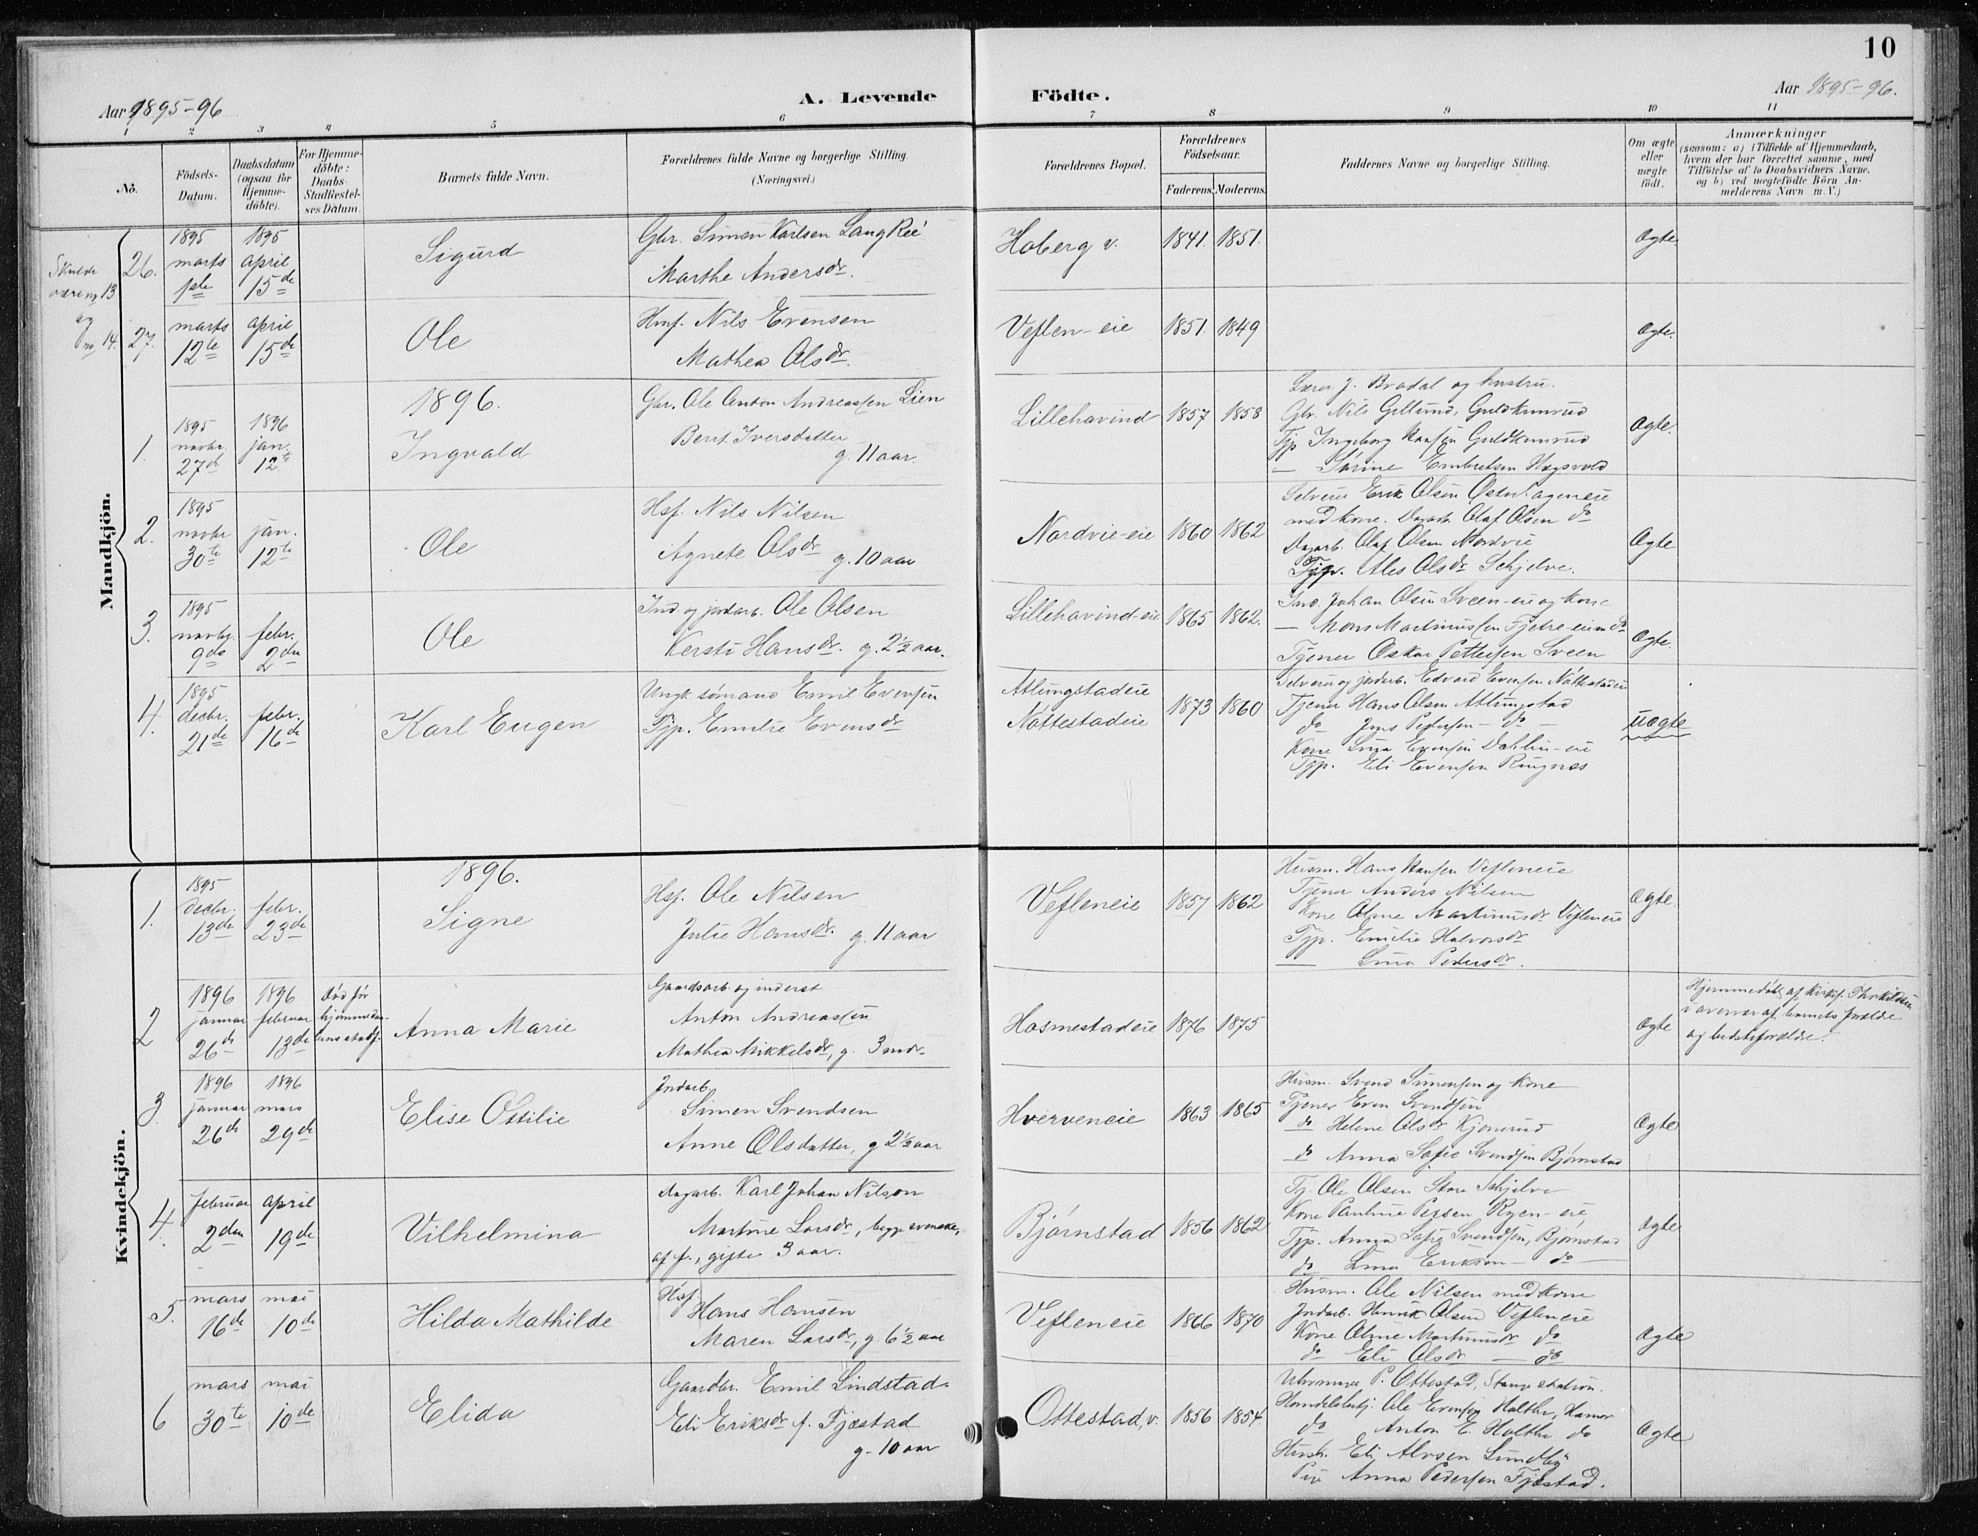 10
Aar 1895-96
A. Levende Födte.
Aar 1895-96.
1 2 3 4 5 6 7 8 9 10 11
No.
Födsels-Datum.
Daabsdatum (ogsaa for Hjemme-döbte).
For Hjemme-döbte: Daabs-Stadfæstel-ses Datum.
Barnets fulde Navn.
Forældrenes fulde Navne og borgerlige Stilling. (Næringsvei.)
Forældrenes Bopæl.
Forældrenes Födselsaar.
Faderens. Moderens.
Faddernes Navne og borgerlige Stilling.
Om ægte eller uægte födt.
Anmærkninger
(saasom: a) i Tilfælde af Hjemmedaab, hvem der har forrettet samme, med Tilföielse af to Daabsvidners Navne. og b) ved uægtefödte Börn An-melderens Navn m. V.)
Mandkjön.
Skulde være no 13
og
no 14.
26. 1895 marts 1ste
1895 april 15de
Sigurd
Gbr. Simen Karlsen Lang Ree
Marthe Andersdr.
Hoberg v. 1841. 1851. Ægte
27. marts 12te
april 15de
Ole
Hmf. Nils Evensen
Mathea Olsdr.
Veflen-eie 1851. 1849 Ægte.
1896.
1. 1895 novbr. 27de
1896 jan. 12te
Ingvald
Gbr. Ole Anton Andreassen Lien
Berit Iversdatter
g. 11 aar
Lillehavind 1857 1858
Lærer J. Brodal og hustru.
Gbr. Nils Gillund, Guldkunrud
Tjp Ingeborg Hansen Guldkunrud
— Sørine Embretsen Hagsvold
Ægte.
2. 1895 novbr 30te
jan. 12te
Ole
Hsf. Nils Nilsen
Agnete Olsdr g. 10 aar
Nordvie-eie 1860 1862
Selveier Erik Olsen
med kone. Dagarb. Olaf Olsen do
Dagarb. Olaf Olsen Nordvie
Tjp. Ales Olsdr Schjelve.
Ægte
3. 1895 novbr. 9de
febr. 2den
Ole
Ind og jordarb. Ole Olsen
Kersti Hansdr. g. 2½ aar.
Lillehavind-eie 1865 1862.
Ind. Johan Olsen Sveen-eie og kone
— Mons Martinussen Fjetre-eie m do
Tjener Oskar Pettersen Sveen
Ægte.
4. 1895 decbr. 21de
febr. 16de
Karl Eugen
Ungk. sømand Emil Evensen
Tjp. Emilie Evensdr
Atlungstadeie
Nøttestadeie
1873 1860
Selveier og jordarb. Edvard Evensen Nøttestadeie
Tjener Hans Olsen Atlungstad
do Jens Pedersen — do —
Kone Lina Evensen Dahlin-eie
Tjp. Eli Evensen Ringnæs
uægte
Kvindekjön.
1896.
1. 1895 decbr. 13de
febr. 23de
Signe
Hsf. Ole Nilsen
Julie Hansdr. g. 11 aar
Vefleneie 1857 1862
Husm. Hans Hansen Vefleneie
Tjener Anders Nilsen
Kone Oline Martinusdr Vefleneie
Tjp. Emilie Halvorsdr
— Lina Pedersdr.
Ægte
2 1896 januar 26de
1896 februar 13de
Død før hjemmedaa-bens stadf.
Anna Marie
Gaardsarb. og inderst
Anton Andreassen
Mathea Mikkelsdr, g. 3 mdr
Hosmestadeie 1876 1875
Ægte
Hjemmedøbt af kirkes. Thorkildsen
i overvær af barnets forældre
og bedsteforældre.
3 1896 januar 26de
1896 mars 29de
Elise Ottilie
Jndarb.
Simen Svendsen
Anne Olsdatter, g 2½ aar
Hverveneie 1863 1865
Husm. Svend Simensen og kone
Tjener Even Svendsen
do Helene Olsdr Kjonerud
do Anna Sofie Svendsen Bjørnstad
Ægte
4. februar 2den
april 19de
Vilhelmina
Dagarb. Karl Johan Nilsson
Martine Larsdr, begge svenske,
af f., gifte 3 aar.
Bjørnstad 1856 1862
Tj. Ole Olsen Store Schjelve
Kone Pauline Persen Ryen-eie
Tjp. Anna Sofie Svendsen, Bjørnstad
do Lina Erikson — do —
Ægte
5. mars 16de
mai 10de
Hilda Mathilde
Hsf.
Hans Hansen
Maren Larsdr, g. 6½ aar
Vefleneie 1866 1870
Husm. Ole Nilsen med kone
Jndarb. Henrik Olsen Vefleneie
Kone Oline Martinusdr do
do Eli Olsdr — do
Ægte
6 mars 30te
mai 10de
Elida
Gaardbr. Emil Lindstad
Eli Eriksdr f. Fjæstad
g. 10 aar
Ottestad, v. 1856 1854
Uhrmager P. Ottestad, Stange station.
Handelsbetj. Ole Evensen Holthe, Hamar
do Anton E. Holthe do
Hustr. Eli Alvsen Lundby
Pie Anna Pedersen Fjæstad.
Ægte